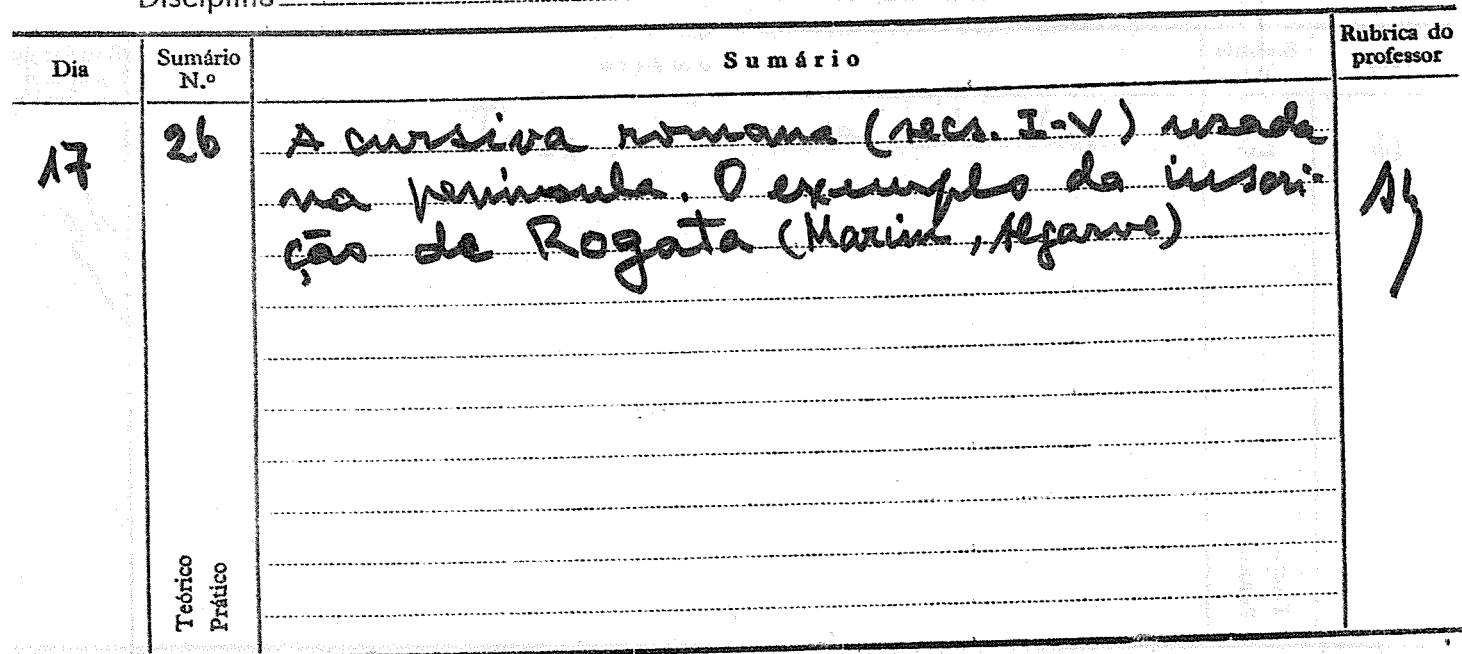 Disciplina
Dia
Sumário N.º
Sumário
Rubrica do professor
17
26
A cursiva romana (secs. I-V) usada
na peninsula. O exemplo da inscri-
ção de Rogata (Marim, Algarve)
Teórico
Prático